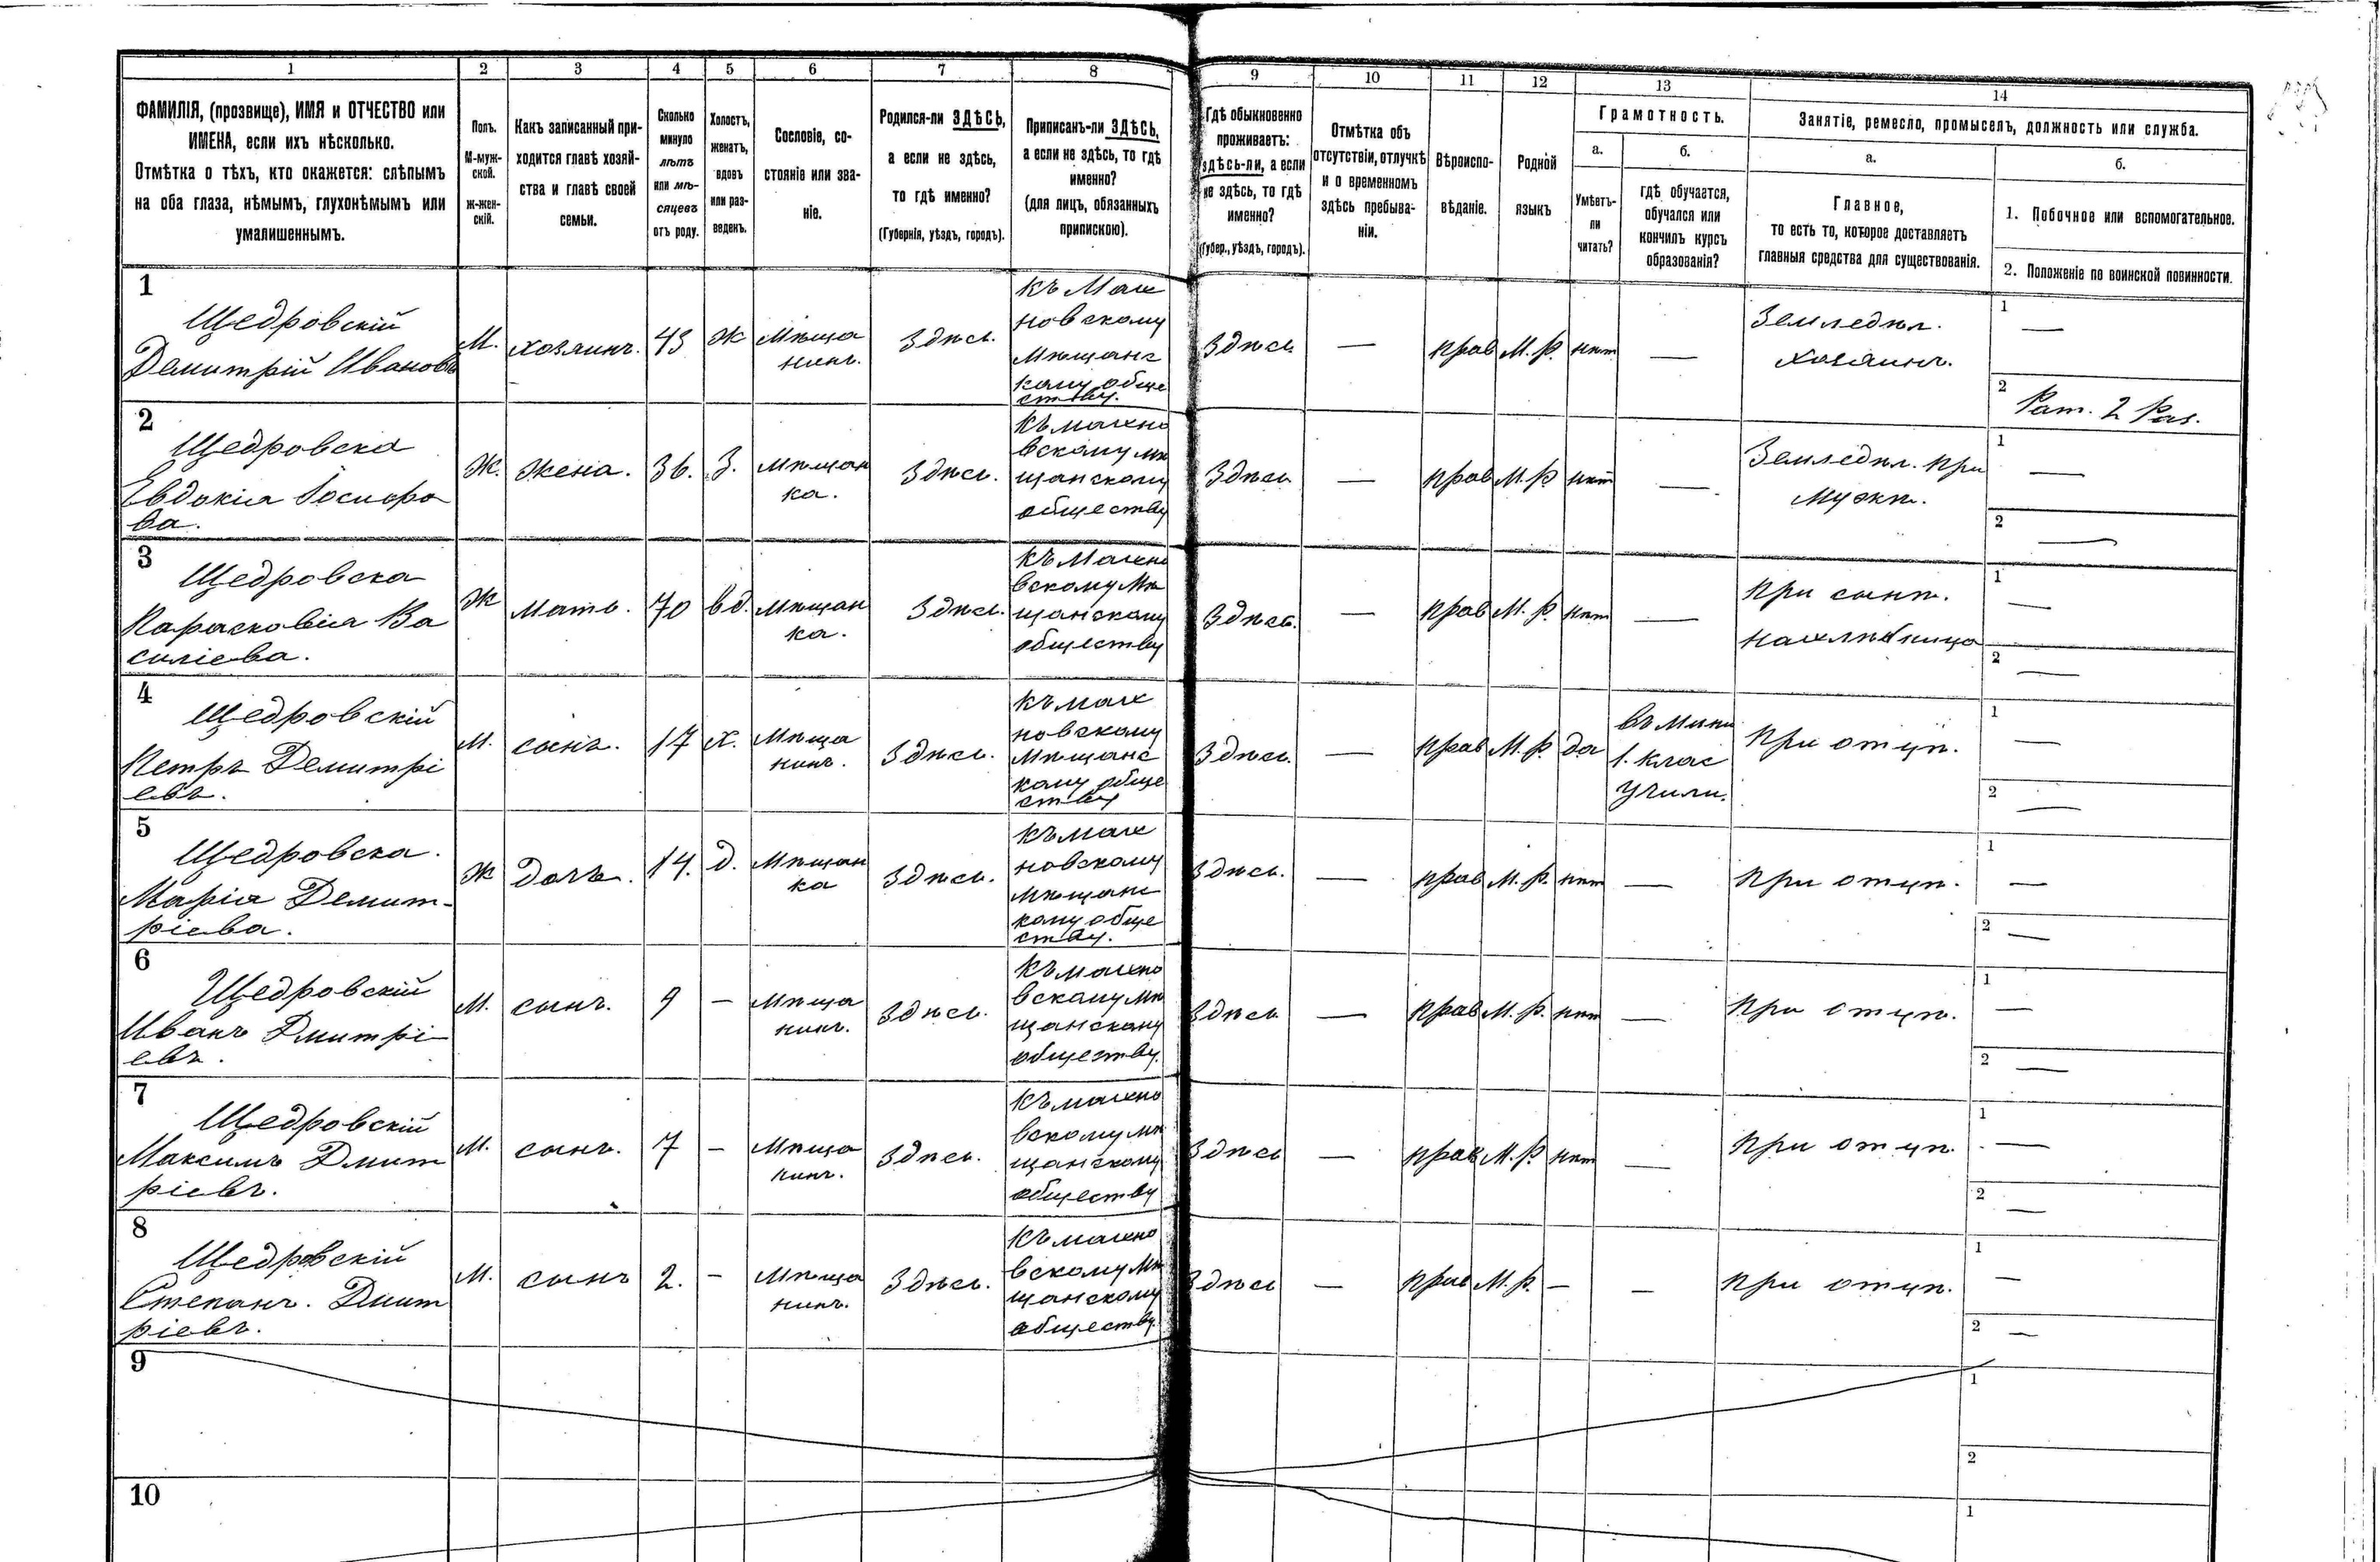 1 2 3 4 5 6 7 8 9 10 11 12 13 14
ФАМИЛІЯ, (прозвище), ИМЯ и ОТЧЕСТВО или
ИМЕНА, если ихъ нѣсколько.
Отмѣтка о тѣхъ, кто окажется: слѣпымъ
на оба глаза, нѣмымъ, глухонѣмымъ или
умалишеннымъ.
Полъ.
М-муж-
ской.
ж-жен-
скій.
Какъ записанный при-
ходится главѣ хозяй-
ства и главѣ своей
семьи.
Сколько
минуло
лѣтъ
или мѣ-
сяцевъ
отъ роду.
Холостъ,
женатъ,
вдовъ
или раз-
веденъ.
Сословіе, со-
стояніе или зва-
ніе.
Родился-ли ЗДѢСЬ,
а если не здѣсь,
то гдѣ именно?
(Губернія, уѣздъ, городъ).
Приписанъ-ли ЗДѢСЬ,
а если не здѣсь, то гдѣ
именно?
(для лицъ, обязанныхъ
припискою).
Гдѣ обыкновенно
проживаетъ:
здѣсь-ли, а если
не здѣсь, то гдѣ
именно?
(Губер., уѣздъ, городъ).
Отмѣтка объ
отсутствіи, отлучкѣ
и о временномъ
здѣсь пребыва-
ніи.
Вѣроиспо-
вѣданіе.
Родной
языкъ
Грамотность.
а.
Умѣетъ-
ли
читать?
б.
гдѣ обучается,
обучался или
кончилъ курсъ
образованія?
Занятіе, ремесло, промыселъ, должность или служба.
а.
Главное,
то есть то, которое доставляетъ
главныя средства для существованія.
б.
1. Побочное или вспомогательное.
2. Положеніе по воинской повинности.
1
Щедровскій
Демитрій Ивановъ
М.
хозяинъ.
43
Ж
Мѣща
нинъ.
Здѣсь.
Къ Мах
новскому
Мѣщанс
кому обще
ству.
Здѣсь
—
прав
М. р.
нѣт
—
Земледѣл.
хозяинъ.
1
—
2
Рат. 2 Раз.
2
Щедровска
Евдокіа Іосифо
ва.
Ж.
жена.
36.
З.
Мѣщан
ка.
Здѣсь.
Къ махно
вскому мѣ
щанскому
обществу
Здѣсь
—
прав
М. р
нѣт
—
Земледѣл. при
мужѣ.
1
—
2
—
3
Щедровска
Парасковіа Ва
силіева.
Ж
Мать.
70
вд.
Мѣщан
ка.
Здѣсь.
Къ Махно
вскому Мѣ
щанскому
обществу
Здѣсь.
—
прав
М. р.
нѣт
—
при сынѣ.
нахлѣбница
1
—
2
—
4
Щедровскій
Петръ Демитрі
евъ.
М.
сынъ.
17
х.
Мѣща
нинъ.
Здѣсь.
Къ мах
новскому
Мѣщанс
кому обще
ству
Здѣсь.
—
прав
М. р.
да
въ Мини
1. клас
Учили.
при отцѣ.
1
—
2
—
5
Щедровска.
Маріа Демит-
ріева.
Ж
дочь.
14.
д.
Мѣщан
ка
Здѣсь.
Къ мах
новскому
мѣщанс
кому обще
ству.
Здѣсь.
—
прав
М. р.
нѣт
—
при отцѣ.
1
—
2
—
6
Щедровскій
Иванъ Дмитрі-
евъ.
М.
сынъ.
9
—
Мѣща
нинъ.
Здѣсь.
Къ махно
вскому мѣ
щанскому
обществу.
Здѣсь
—
прав
М. р.
нѣт
—
при отцѣ.
1
—
2
—
7
Щедровскій
Максимъ Дмит
ріевъ.
М.
сынъ.
7
—
Мѣща
нинъ.
Здѣсь.
Къ махно
вскому мѣ
щанскому
обществу
Здѣсь
—
прав
М. р.
нѣт
—
при отцѣ.
1
—
2
—
8
Щедровскій
Степанъ. Дмит
ріевъ.
М.
сынъ
2.
—
Мѣща
нинъ.
Здѣсь.
Къ махно
вскому Мѣ
щанскому
обществу.
Здѣсь
—
прав
М. р.
—
—
при отцѣ.
1
—
2
—
9
1
2
10
1